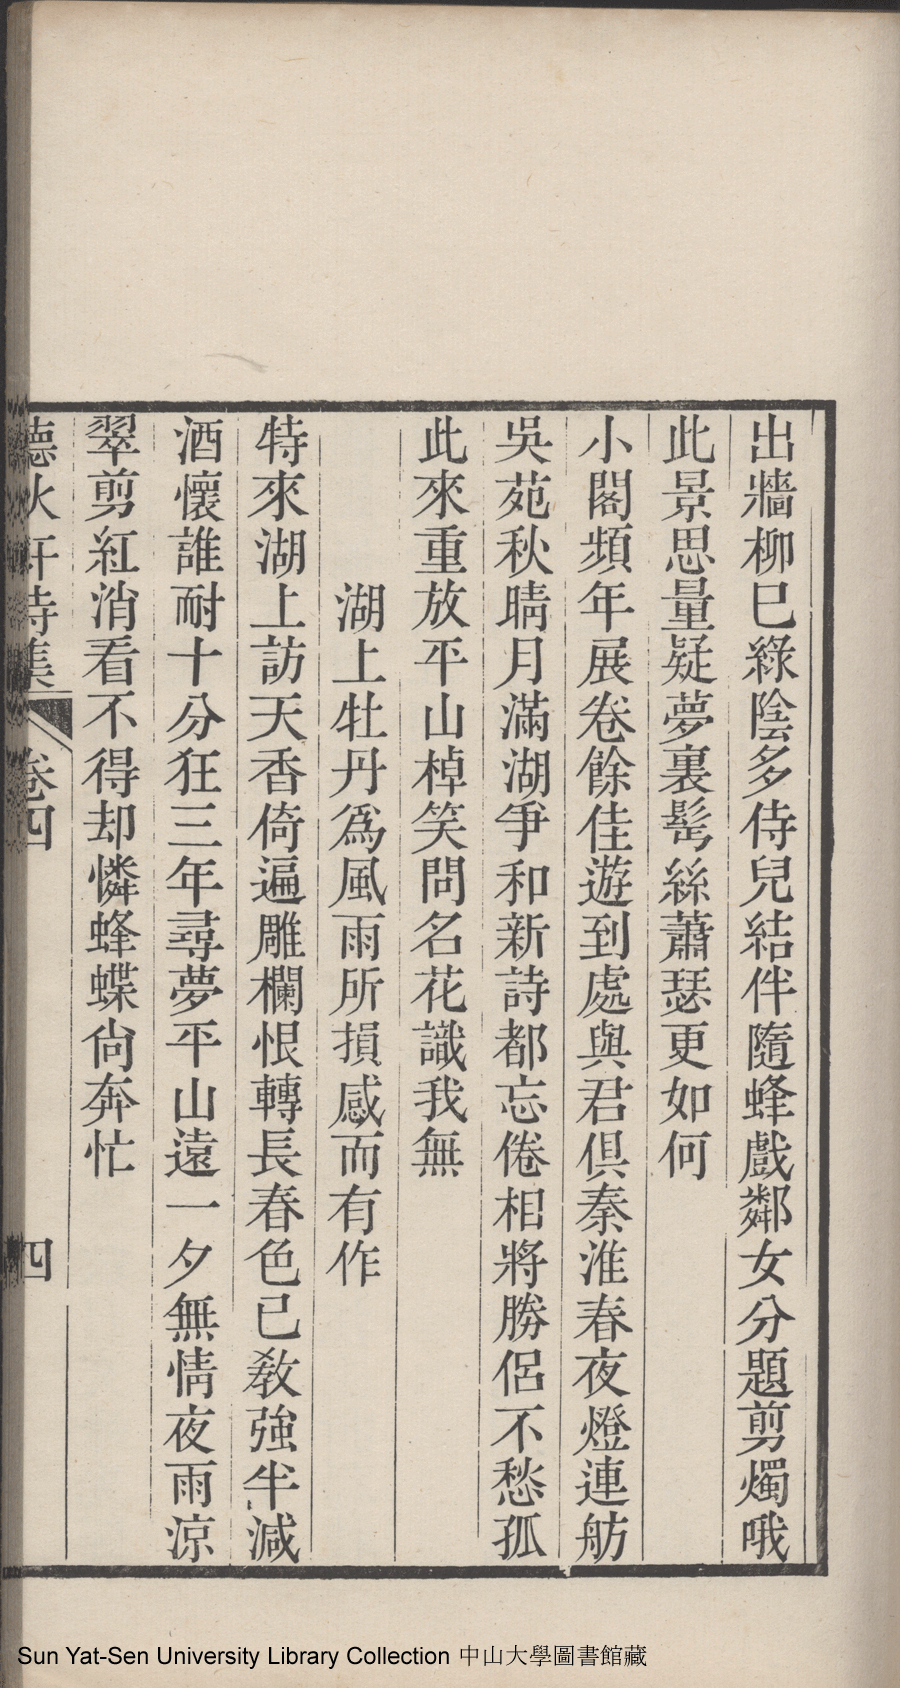 出牆柳巳綠陰多侍兒結伴隨蜂戲鄰女分題剪燭哦
此景思量疑夢裏髩絲蕭瑟更如何
小閣頻年展卷餘佳遊到處與君俱秦淮春夜燈連舫
吳苑秋晴月滿湖爭和新詩都忘倦相將勝侶不愁孤
此來重放平山棹笑問名花識我無
湖上牡丹為風雨所損感而有作
特來湖上訪天香倚遍雕欄恨轉長春色已教強半減
酒懷誰耐十分狂三年尋夢平山遠一夕無情夜雨涼
翠剪紅消看不得却憐蜂蝶尙奔忙
詩集 卷四 四
Sun Yat-Sen University Library Collection 中山大學圖書館藏